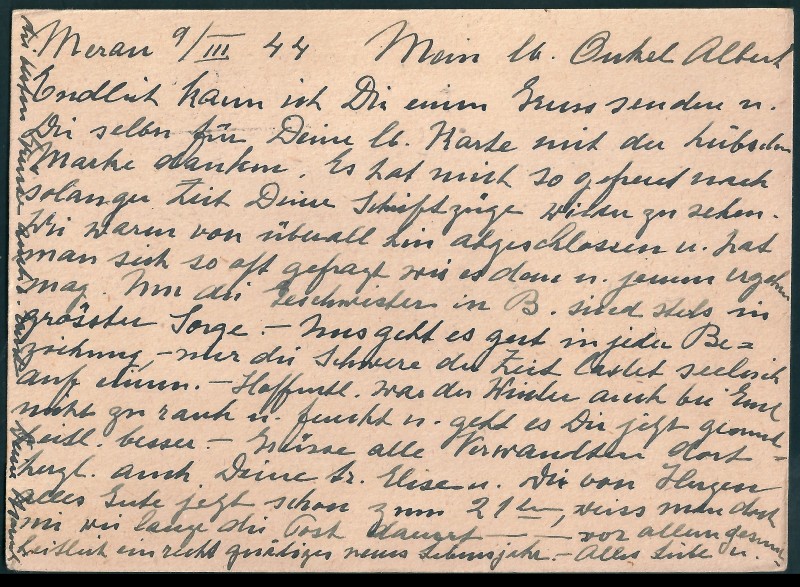 Meran 9/III 44 Mein lb. Onkel Albert
Endlich kann ich Dir einen Gruss senden u.
Dir selbn für Deine lb. Karte mit der hübschen
Marke danken. Es hat mich so gefreut nach
solanger Zeit Deine Schriftzüge wieder zu sehen.
Wir waren von überall hin abgeschlossen u. hat
man sich so oft gefragt wie es dem u. jenem ergehen
mag. Um die Geschwister in B. sind stets in
grösster Sorge. – Uns geht es gut in jeder Be=
ziehung, – nur die Schwere der Zeit lastet seelisch
auf einem. – Hoffentl. war der Winter auch bei Euch
nicht zu rauh u. feucht u. geht es Dir jetzt gesund-
heitl. besser. – Grüsse alle Verwandten dort
herzl. auch Deine tr. Elise u. Dir von Herzen
alles Gute jetzt schon zum 21ten, weiss man doch
nie wie lange die Post dauert — – vor allem gesund-
heitlich ein recht günstiges neues Lebensjahr. – Alles Liebe u.
die besten